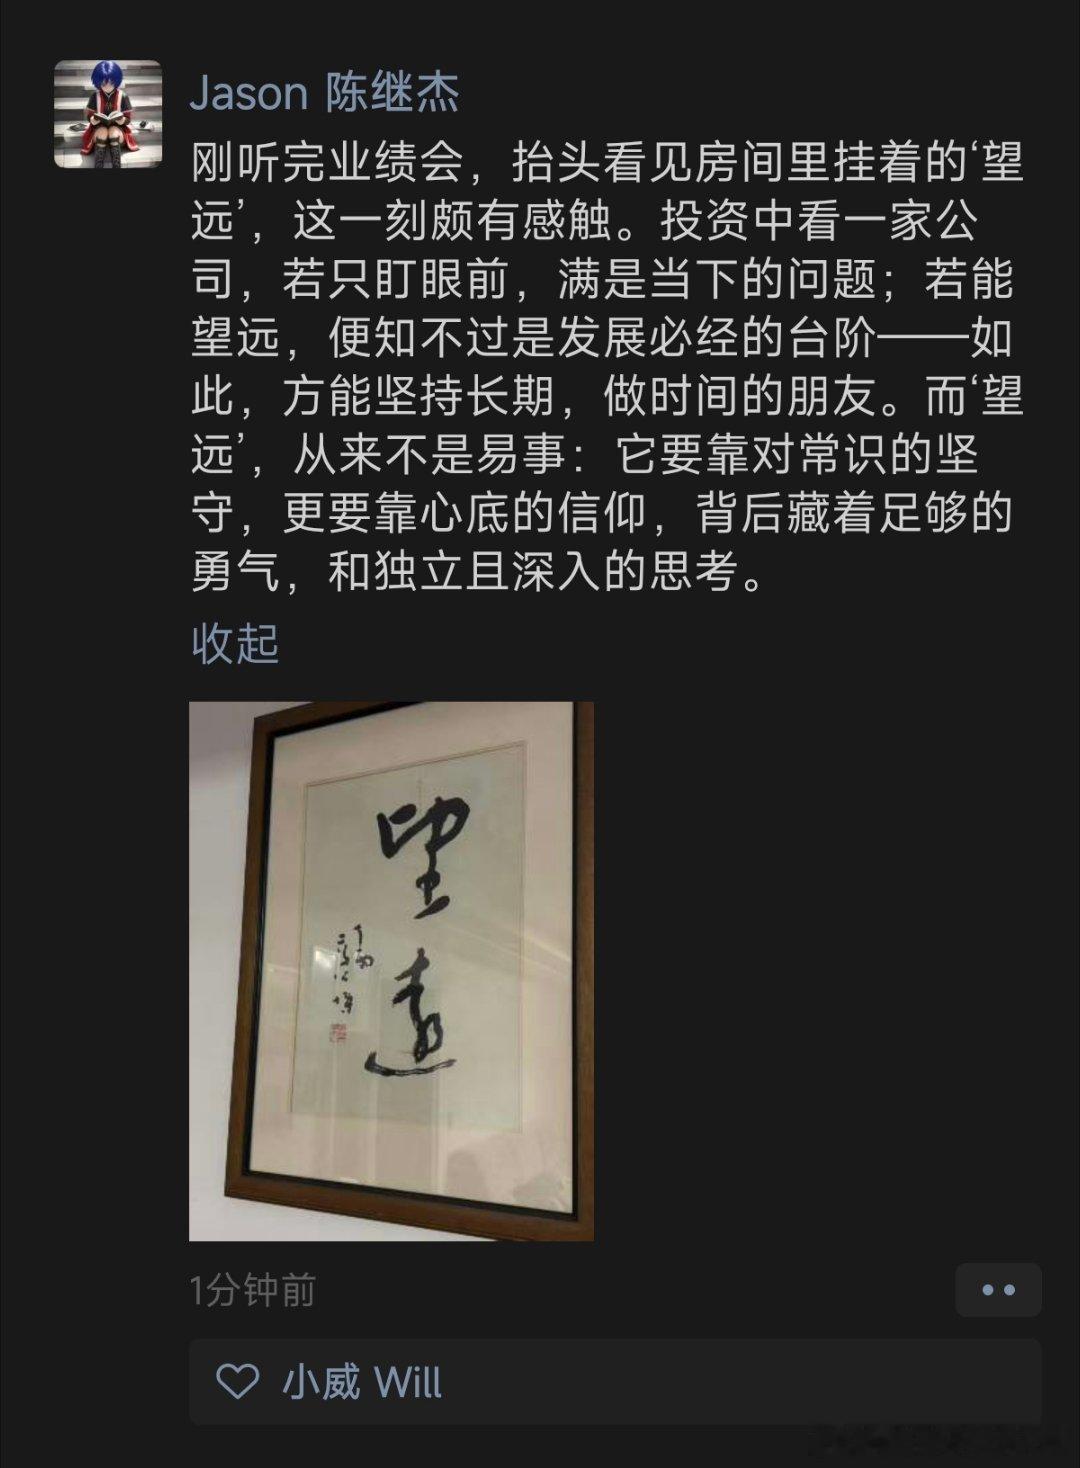 Jason 陈继杰
刚听完业绩会，抬头看见房间里挂着的‘望
远’，这一刻颇有感触。投资中看一家公
司，若只盯眼前，满是当下的问题；若能
望远，便知不过是发展必经的台阶——如
此，方能坚持长期，做时间的朋友。而‘望
远’，从来不是易事：它要靠对常识的坚
守，更要靠心底的信仰，背后藏着足够的
勇气，和独立且深入的思考。
收起
望
遠
1分钟前
小威 Will